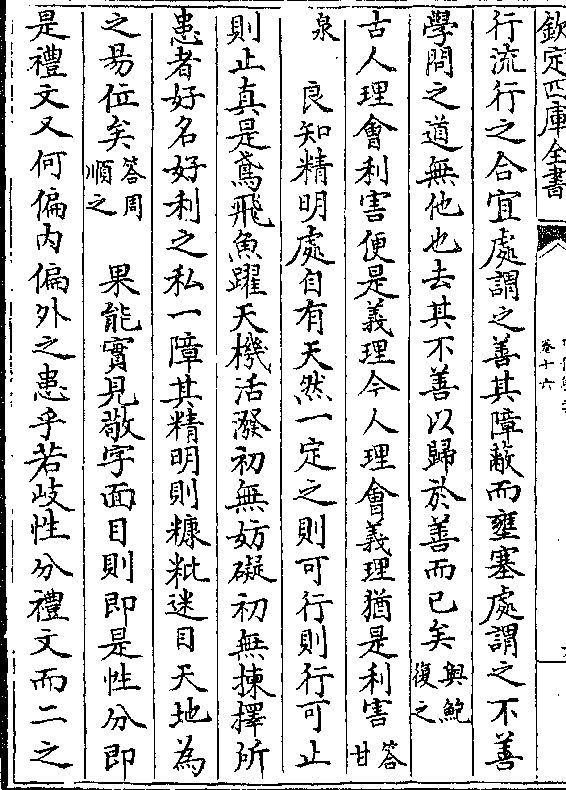 欽定四庫全書
卷十六
行流行之合宜處謂之善其障蔽而壅塞處謂之不善
學問之道無他也去其不善以歸於善而已矣與鮑復之
古人理會利害便是義理今人理會義理猶是利害答甘
泉　良知精明處自有天然一定之則可行則行可止
則止真是鳶飛魚躍天機活潑初無妨礙初無揀擇所
患者好名好利之私一障其精明則糠粃迷目天地為
之易位矣答周順之　果能實見敬字面目則即是性分即
是禮文又何偏內偏外之患乎若歧性分禮文而二之